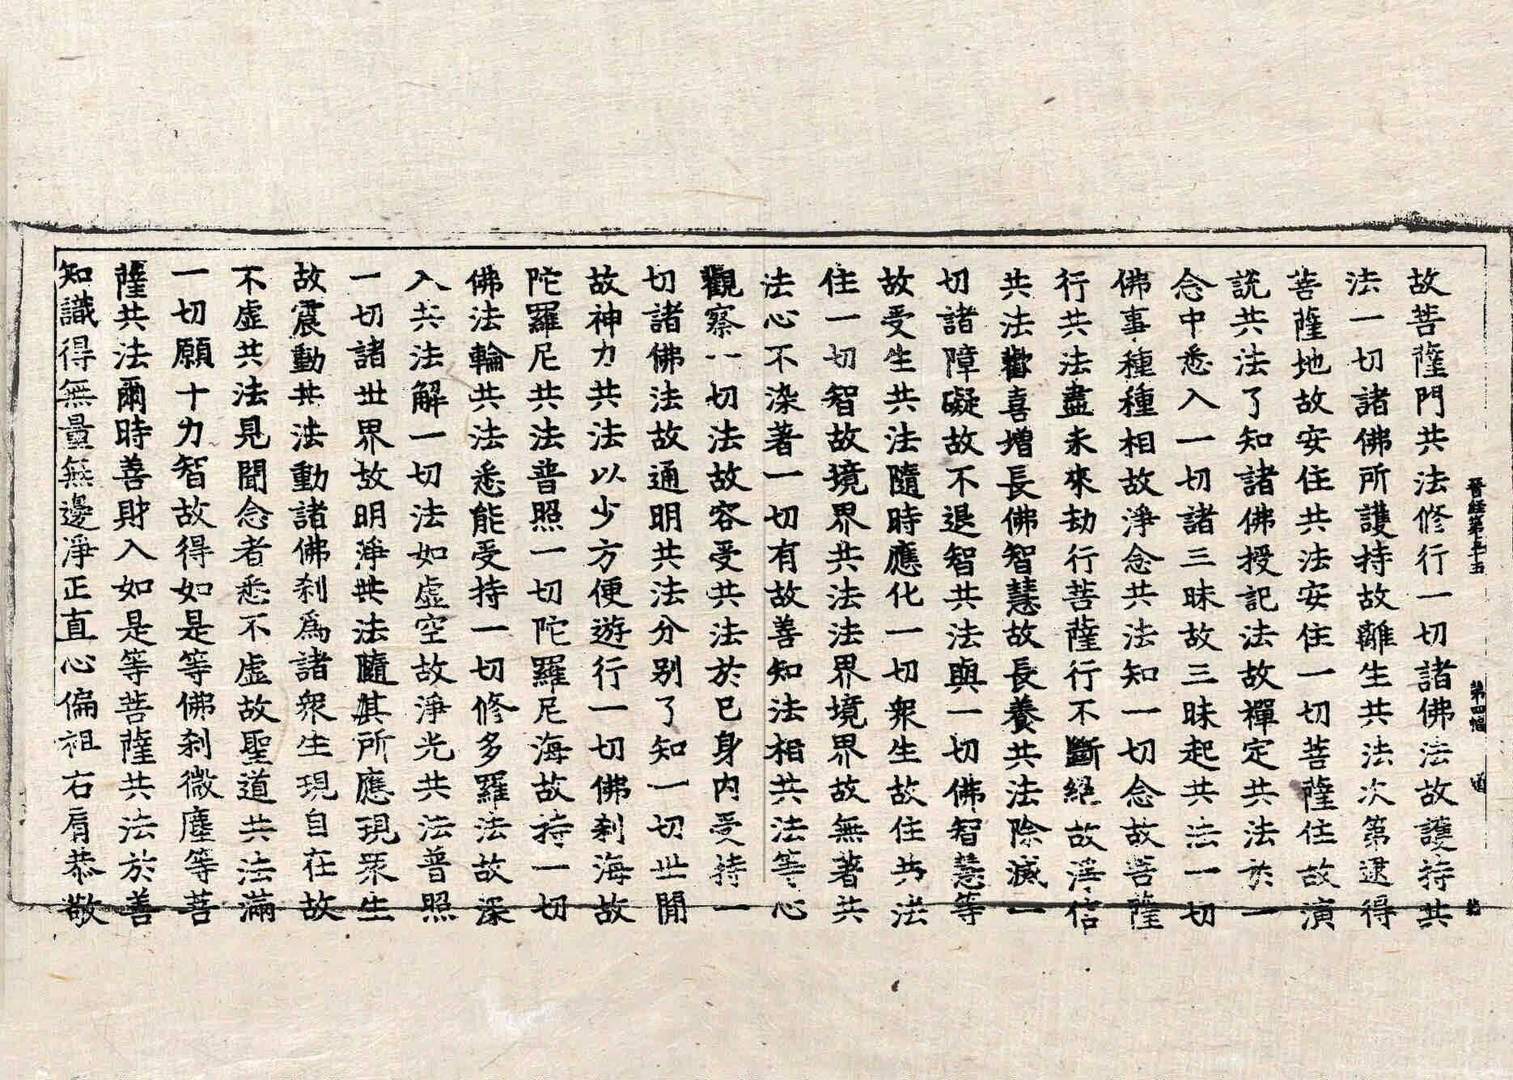 晉經第五十五 第四幅 道
故菩薩門共法修行一切諸佛法故護持共
法一切諸佛所護持故離生共法次第逮得
菩薩地故安住共法安住一切菩薩住故演
説共法了知諸佛授記法故禪定共法於一
念中悉入一切諸三昧故三昧起共法一切
佛事種種相故淨念共法知一切念故菩薩
行共法盡未來劫行菩薩行不斷絕故淨信
共法歡喜增長佛智慧故長養共法除滅一
切諸障礙故不退智共法與一切佛智慧等
故受生共法隨時應化一切衆生故住共法
住一切智故境界共法法界境界故無著共
法心不染著一切有故善知法相共法等心
觀察一切法故容受共法於己身內受持一
切諸佛法故通明共法分別了知一切世間
故神力共法以少方便遊行一切佛刹海故
陀羅尼共法普照一切陀羅尼海故持一切
佛法輪共法悉能受持一切修多羅法故深
入共法解一切法如虛空故淨光共法普照
一切諸世界故明淨共法隨其所應現衆生
故震動共法動諸佛刹爲諸衆生現自在故
不虛共法見聞念者悉不虛故聖道共法滿
一切願十力智故得如是等佛刹微塵等菩
薩共法爾時善財入如是等菩薩共法於善
知識得無量無邊淨正直心偏袒右肩恭敬